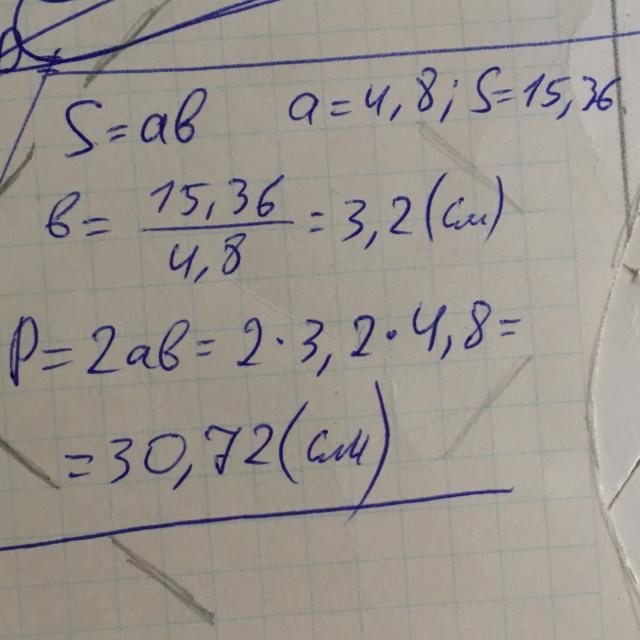 S=ab a=4,8; S=15,36
b= 15,36/4,8 =3,2(см)
P=2ab=2·3,2·4,8=
=30,72(см)